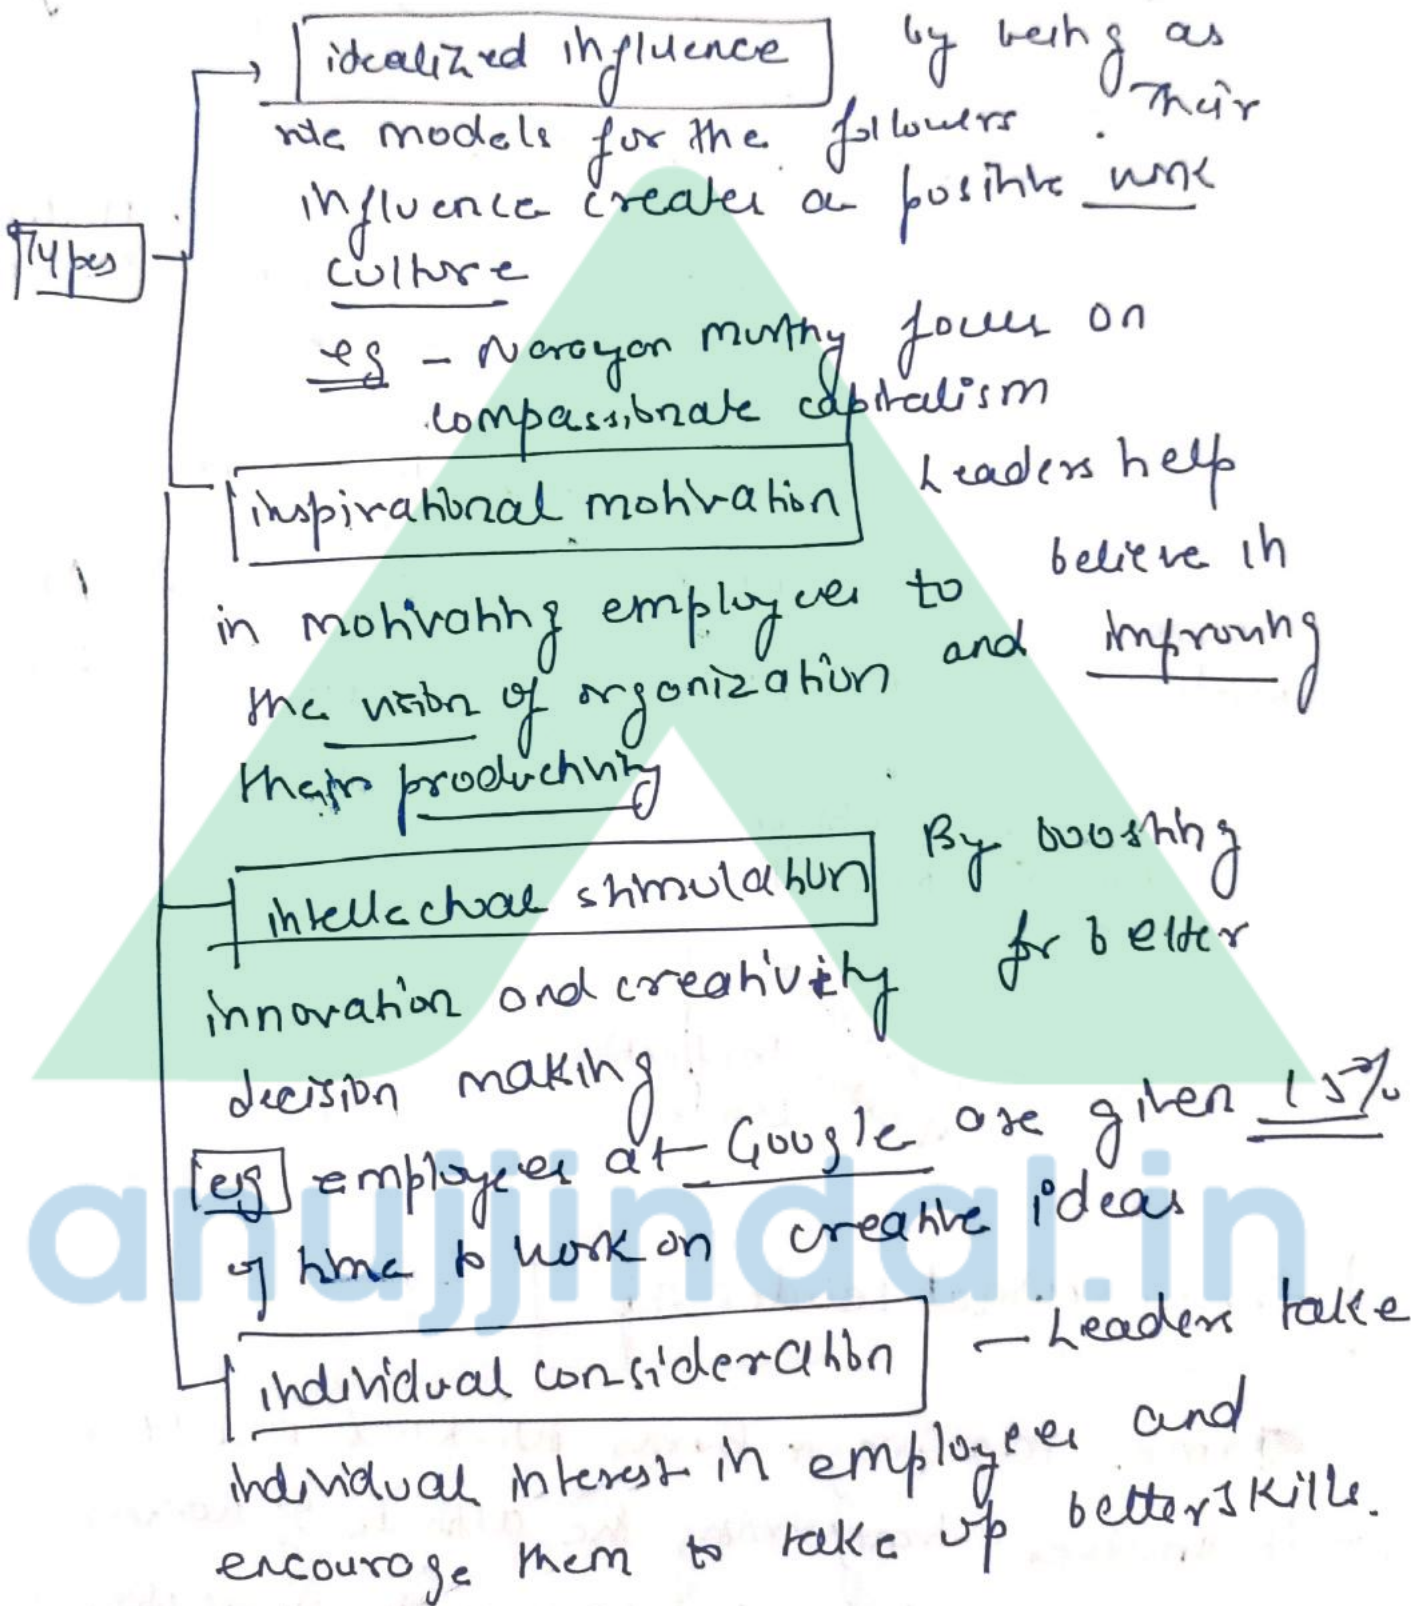 Types
idealized influence by being as
role models for the followers. Their
influence creates a positive work
culture
eg - Narayan Murthy focus on
compassionate capitalism
inspirational motivation Leaders help
in motivating employees to believe in
the vision of organization and improving
their productivity
intellectual stimulation By boosting
innovation and creativity for better
decision making.
eg employees at Google are given 15%
of time to work on creative ideas
individual consideration - Leaders take
individual interest in employees and
encourage them to take up better skills.
anujjindal.in